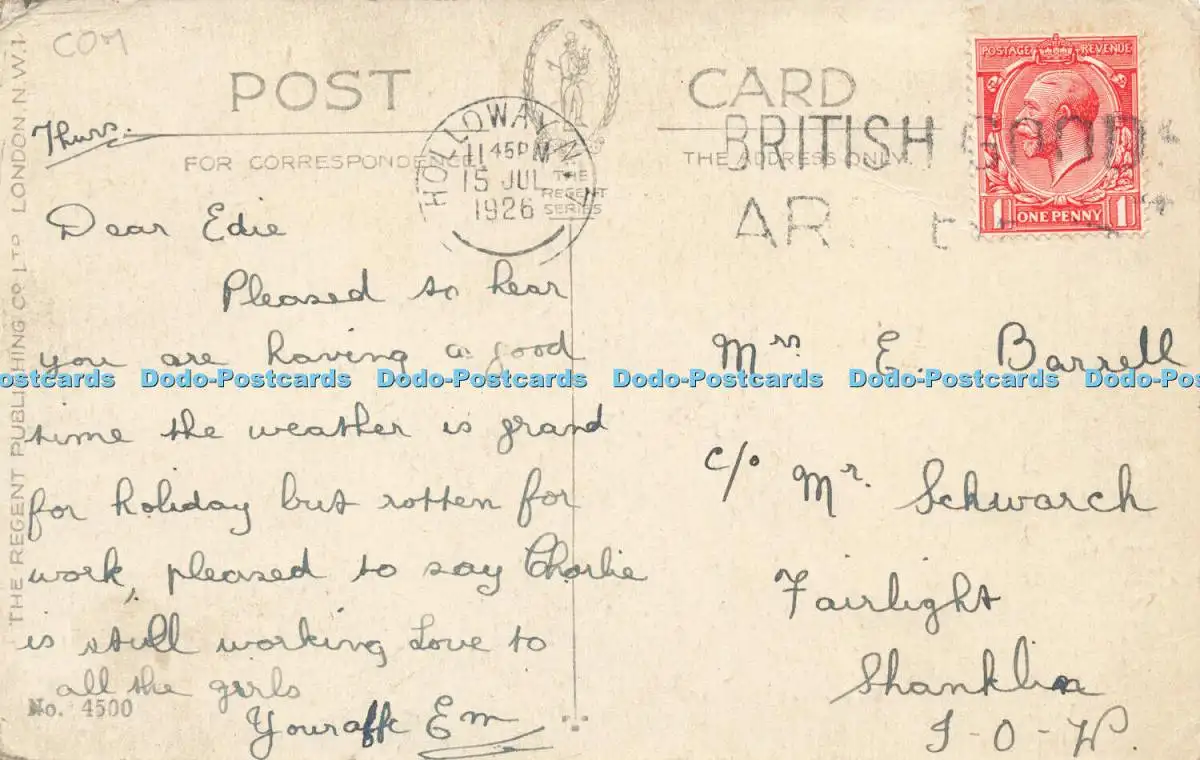 COM
POST CARD
POSTAGE REVENUE
HOLLOWAY N.
11 45 PM
15 JUL
1926
BRITISH GOODS
AR
1 ONE PENNY 1
Thurs.
FOR CORRESPONDENCE
THE ADDRESS ONLY.
THE
REGENT
SERIES
Dear Edie
Pleased to hear
you are having a good
time the weather is grand
for holiday but rotten for
work, pleased to say Charlie
is still working Love to
all the girls
Your affc Em
No. 4500
Mrs E. Barrell
c/o Mr. Schwarch
Fairlight
Shanklin
I-O-W.
THE REGENT PUBLISHING CO LTD LONDON N.W.1
Dodo-Postcards Dodo-Postcards Dodo-Postcards Dodo-Postcards Dodo-Postcards